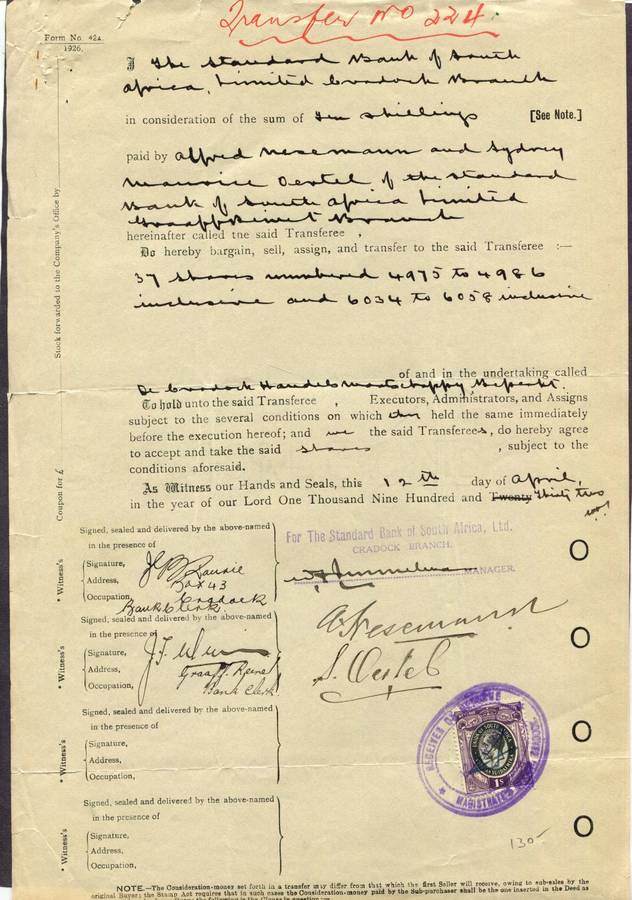 Transfer No 224.
Form No. 42A.
1926.
I The Standard Bank of South
Africa, Limited Cradock Branch
in consideration of the sum of Ten Shillings [See Note.]
paid by Alfred Nesemann and Sydney
Maurice Oertel of the Standard
Bank of South Africa Limited
Graaff Reinet Branch
hereinafter called the said Transferee ,
Do hereby bargain, sell, assign, and transfer to the said Transferee :—
37 Shares numbered 4975 to 4986
inclusive and 6034 to 6058 inclusive
of and in the undertaking called
De Cradock Handelsmaatschappy, Beperkt.
To hold unto the said Transferee , Executors, Administrators, and Assigns
subject to the several conditions on which held the same immediately
before the execution hereof; and we the said Transferees, do hereby agree
to accept and take the said Shares , subject to the
conditions aforesaid.
As Witness our Hands and Seals, this 12th day of April,
in the year of our Lord One Thousand Nine Hundred and Twenty Thirty two
Stock forwarded to the Company's Office by
Coupon for £
Signed, sealed and delivered by the above-named
in the presence of
Witness's
Signature,
Address, Box 43
Cradock
Occupation,
Bank Clerk
For The Standard Bank of South Africa, Ltd.
CRADOCK BRANCH.
MANAGER.
Signed, sealed and delivered by the above-named
in the presence of
Witness's
Signature,
Address, Graaff. Reinet
Occupation, Bank Clerk
A Nesemann
S. Oertel
Signed, sealed and delivered by the above-named
in the presence of
Witness's
Signature,
Address,
Occupation,
RECEIVER OF REVENUE
MAGISTRATE
1s
Signed, sealed and delivered by the above-named
in the presence of
Witness's
Signature,
Address,
Occupation,
130-
NOTE.—The Consideration-money set forth in a transfer may differ from that which the first Seller will receive, owing to sub-sales by the
original Buyer; the Stamp Act requires that in such cases the Consideration-money paid by the Sub-purchaser shall be the one inserted in the Deed as